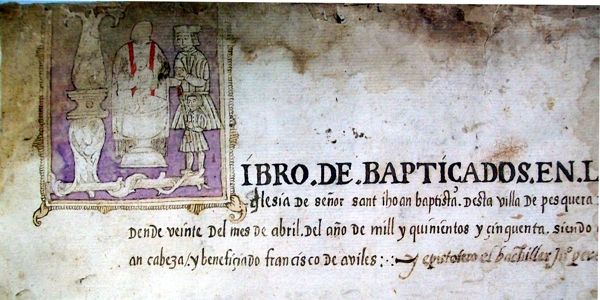 LIBRO.DE.BAPTICADOS.EN.L
yglesia de señor sant ihoan baptista. Desta villa de pesquera
Dende veinte del mes de abril. Del año de mill y quinientos y çinquenta. siendo
an cabeza/y beneficiado francisco de aviles: y epistolero el bachiller Jº pere